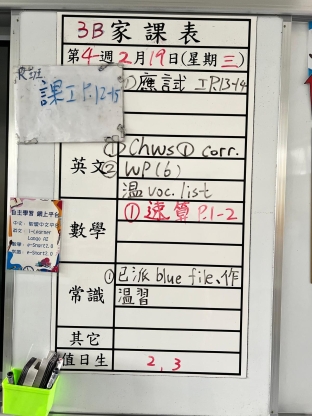 3B 家課表
第4週2月19日(星期三)
R班
課工P.12-15
應試 工P.13-14
英文
① Chws ① corr.
② WP(6)
溫 voc. list
數學
① 速算 P.1-2
常識
① 已派 blue file、作
溫習
其它
值日生
2, 3
自主學習 網上平台